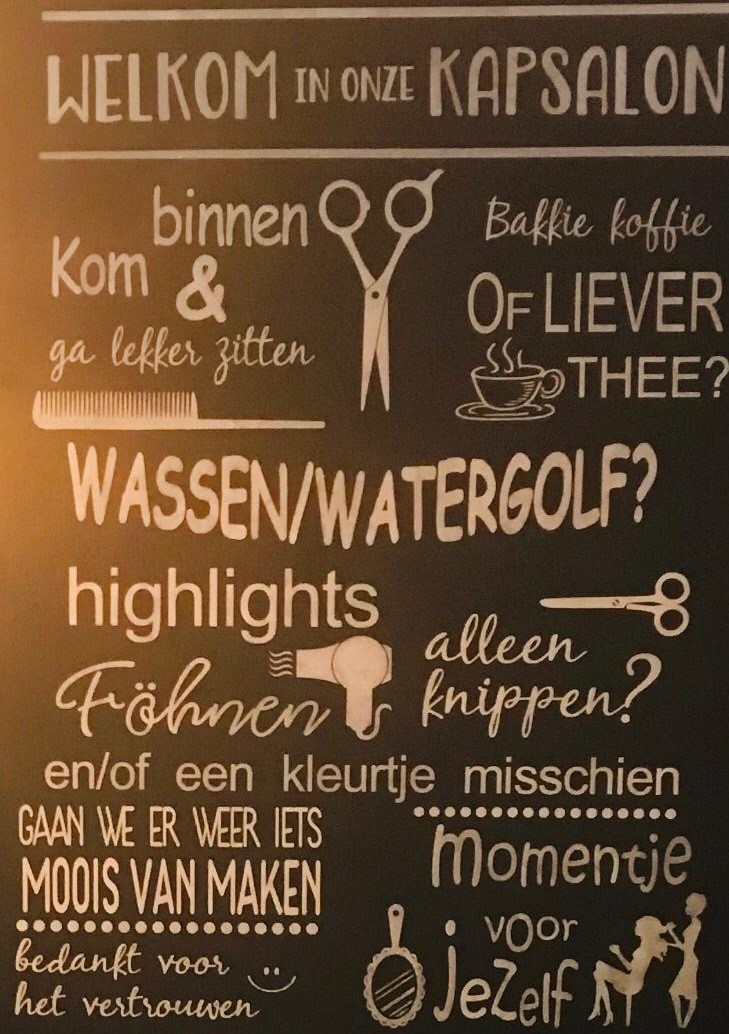 WELKOM IN ONZE KAPSALON
Kom binnen &
ga lekker zitten
Bakkie koffie
OF LIEVER
THEE?
WASSEN/WATERGOLF?
highlights
Föhnen
alleen
knippen?
en/of een kleurtje misschien
GAAN WE ER WEER IETS
MOOIS VAN MAKEN
bedankt voor
het vertrouwen
momentje
voor
jezelf